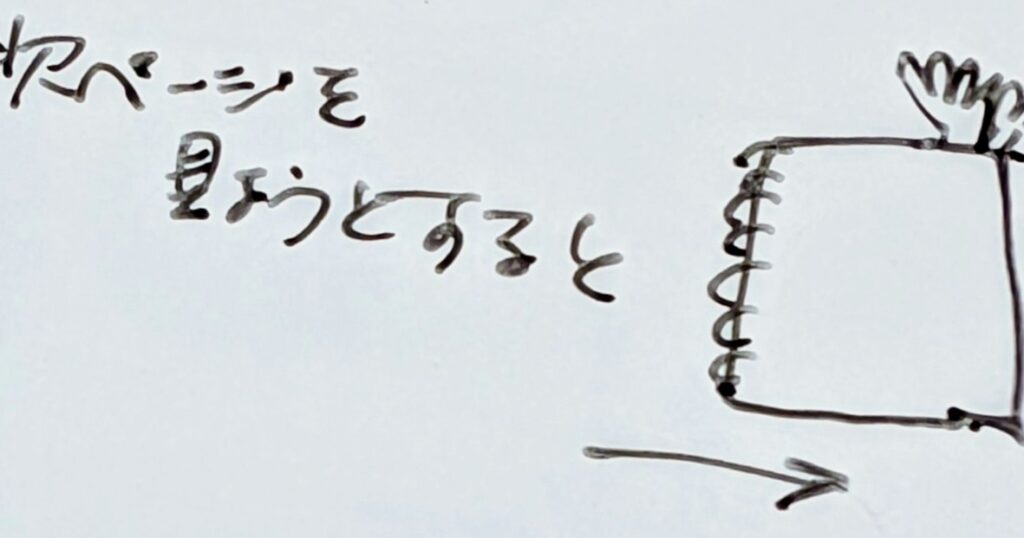 次ページを
見ようとすると